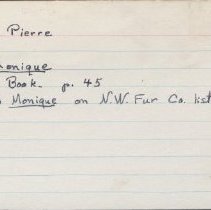 Pierre
onique
Book. p. 45
Monique on N.W. Fur Co. list